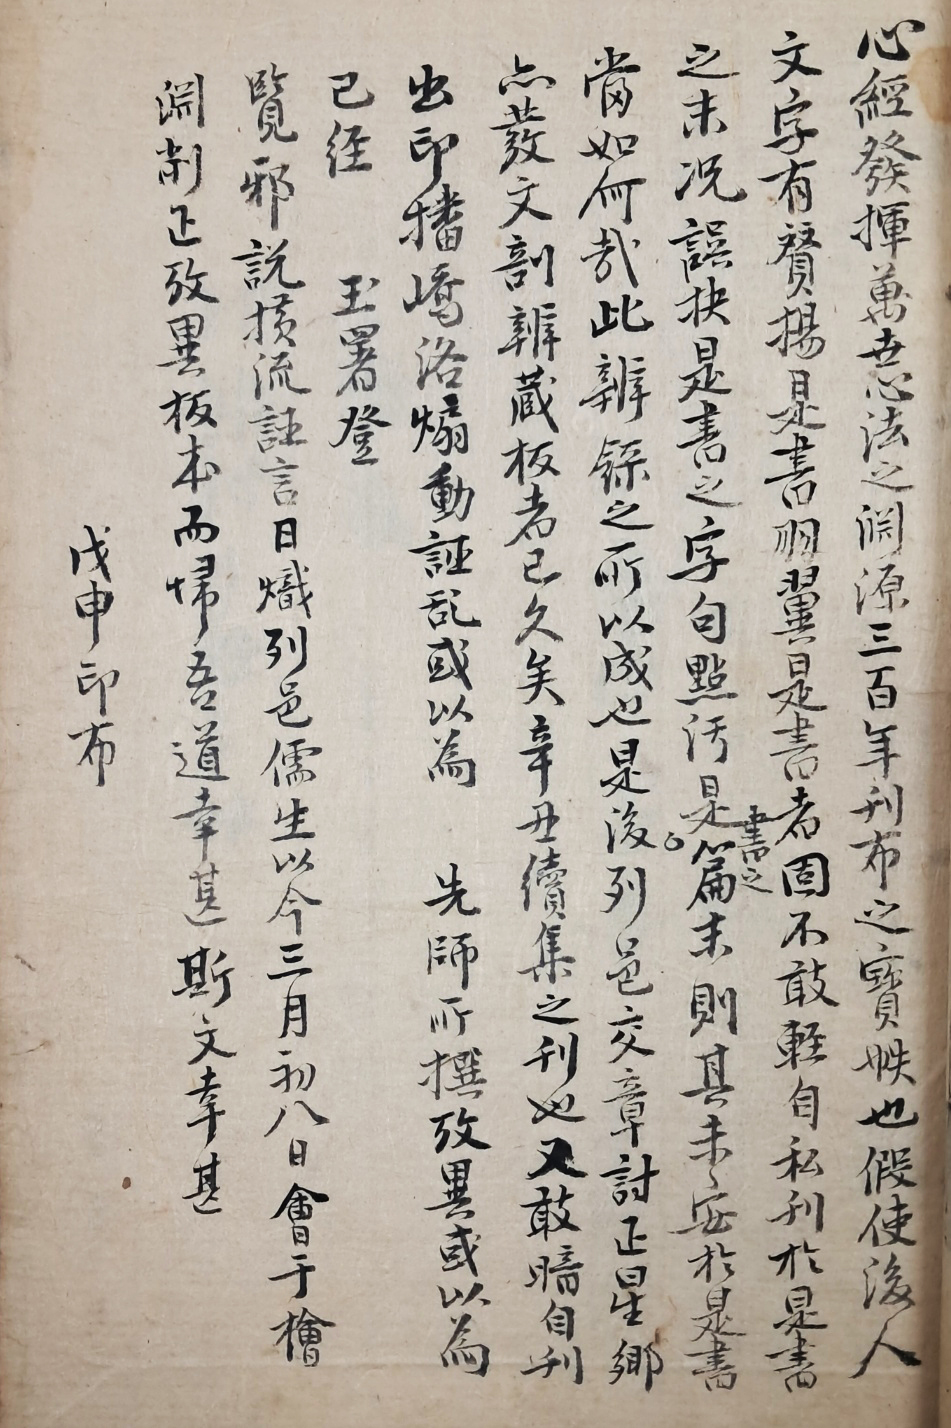 心經發揮萬世心法之淵源三百年刊布之寶帙也假使後人
文字有贊揚是書羽翼是書者固不敢輕自私刊於是書
之末況誤抉是書之字句點汚是書之篇末則其未安於是書
當如何哉此辨錄之所以成也是後列邑交章討正星鄉
亦發文剖辨藏板者已久矣辛丑續集之刊也又敢暗自刊
出印播嶠洛煽動誣乱或以為 先師所撰攷異或以為
已經 玉署登
覽邪說橫流誣言日熾列邑儒生以今三月初八日會于檜
淵削正攷異板本而歸吾道幸甚斯文幸甚
戊申印布